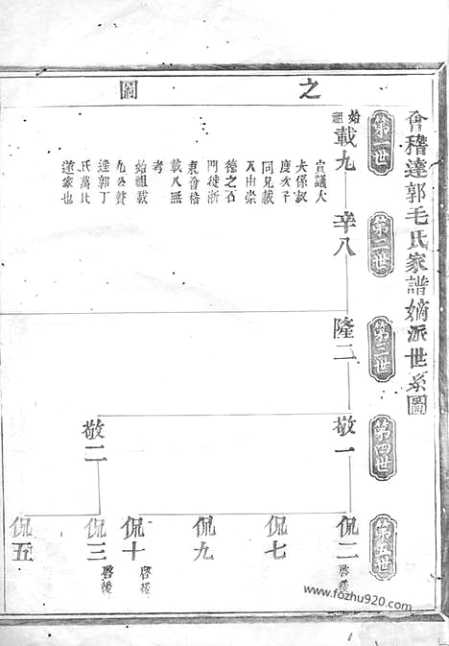 會稽達郭毛氏家譜嫡派世系圖
第一世
第二世
第三世
第四世
第五世
之圖
始祖
載九
宣議大
夫保叔
度次子
同兄載
八由崇
德之石
門徙浙
東會稽
載八無
考
始祖載
九公贅
達郭丁
氏萬氏
遂家也
辛八
隆二
敬一
敬二
侃二
啓後
侃七
侃九
侃十
啓後
侃三
啓後
侃五
www.fozhu920.com